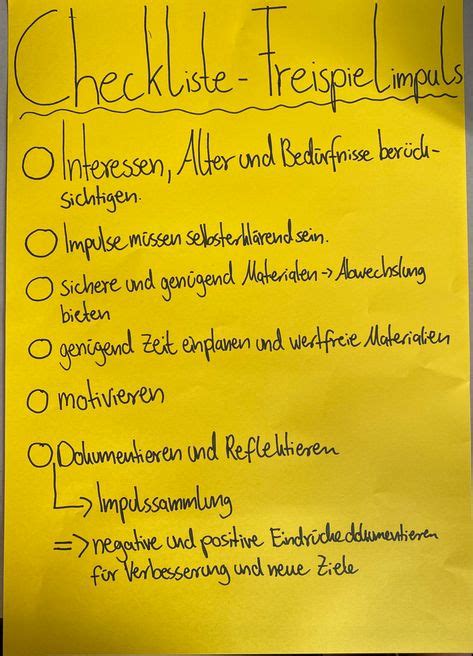 Checkliste - Freispielimpuls
○ Interessen, Alter und Bedürfnisse berück-
sichtigen.
○ Impulse müssen selbsterklärend sein.
○ Sichere und genügend Materialen → Abwechslung
bieten
○ genügend Zeit einplanen und wertfreie Materialien
○ motivieren
○ Dokumentieren und Reflektieren
→ Impulssammlung
=> negative und positive Eindrücke ddkumentieren
für Verbesserung und neue Ziele